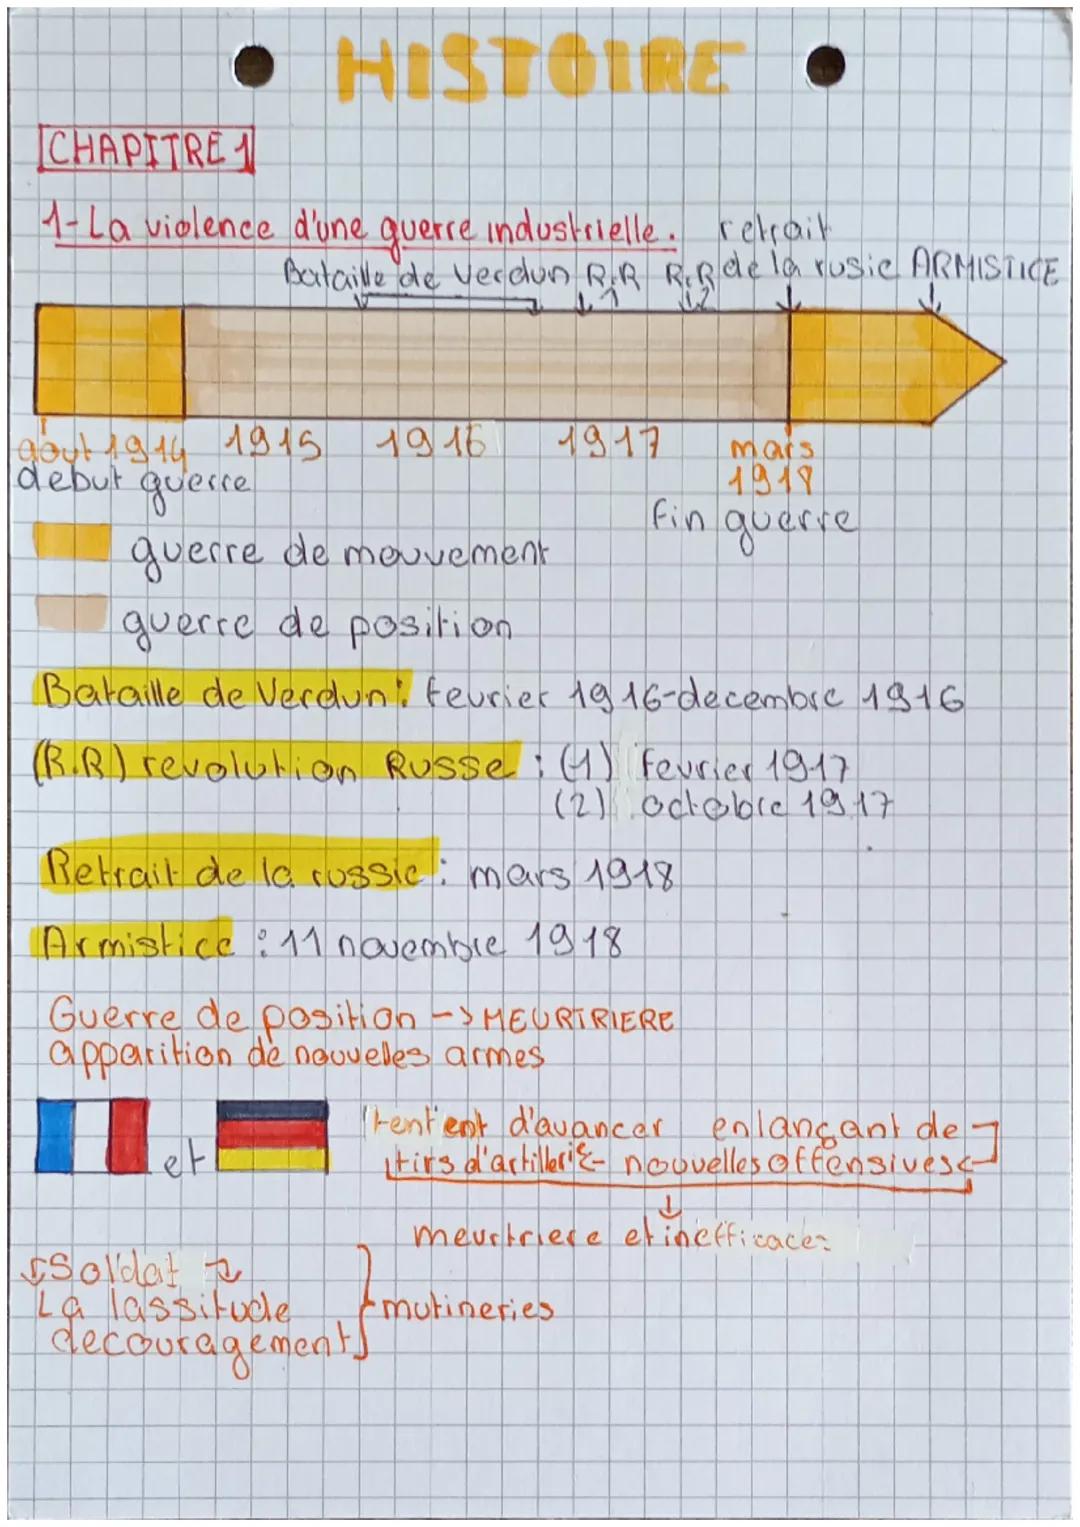 HISTOIRE
CHAPITRE 1
1-La violence d'une guerre industrielle.
retrait
Bataille de Verdun R.R R.R de la rusie ARMISTICE
1 2
août 1914 1915 1916 1917 mars
1918
debut guerre
fin guerre
guerre de mouvement
guerre de position
Bataille de Verdun : fevrier 1916-decembre 1916
(R.R) revolution Russe : (1) fevrier 1917
(2) octobre 1917
Retrait de la russie : mars 1918
Armistice : 11 novembre 1918
Guerre de position -> MEURTRIERE
apparition de nouvelles armes
et
tentent d'avancer en lançant de
tirs d'artillerie nouvelles offensives
meurtriere et inefficace
Soldat
La lassitude
decouragement
mutineries